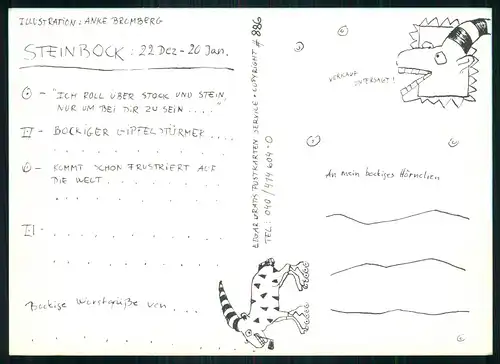 ILLUSTRATION: ANKE BROMBERG
STEINBOCK: 22 DEZ - 20 JAN.
- "ICH ROLL ÜBER STOCK UND STEIN,
NUR UM BEI DIR ZU SEIN ...."
BOCKIGER GIPFELSTÜRMER ....
- KOMMT SCHON FRUSTRIERT AUF
DIE WELT
Bockige Wurstgrüße von ...
EDGAR GRATIS POSTKARTEN SERVICE • COPYRIGHT # 886
TEL: 040/414 604-0
VERKAUF
UNTERSAGT!
An mein bockiges Hörnchen